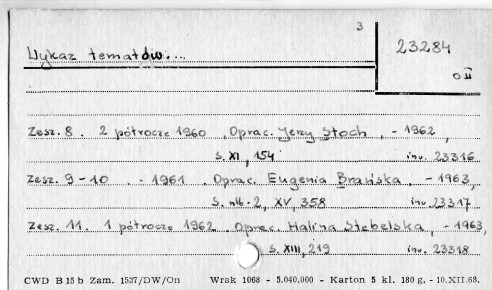 3
Wykaz tematów...
23284
O II
Zesz. 8. 2 półrocze 1960, Oprac. Jerzy Stoch, - 1962,
s. XI, 154 inw. 23316
Zesz. 9-10 . . 1961. Oprac. Eugenia Brańska, - 1963,
s. nlb. 2, XV, 358 inw. 23317
Zesz. 11. 1 półrocze 1962. Oprac. Halina Stebelska, - 1963,
s. XIII, 219 inw. 23318
CWD B 15 b Zam. 1537/DW/On Wrak 1068 - 5.040.000 - Karton 5 kl. 180 g. - 10.XII.68.